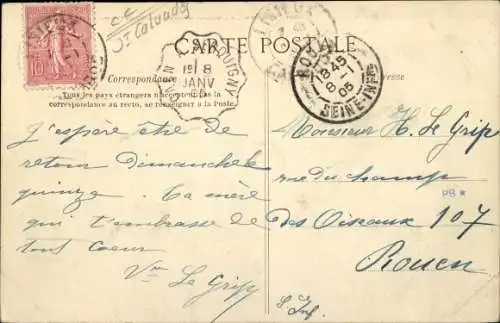 CARTE POSTALE
Correspondance
Tous les pays étrangers n'acceptent pas la
correspondance au recto, se renseigner à la Poste.
10
8
JANV
05
ROUEN
18 45
8-1
05
SEINE-INFRE
LISIEUX
Calvados
J'espère être de
retour Dimanche
quinze. Ta mère
qui t'embrasse de
tout coeur
Le Grip
Monsieur H. Le Grip
rue du champ
des Oiseaux 107
Rouen
S. Inf
PB *